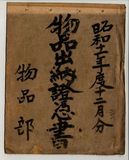 昭和十一年度十二月分
物品出納證憑書
物品部